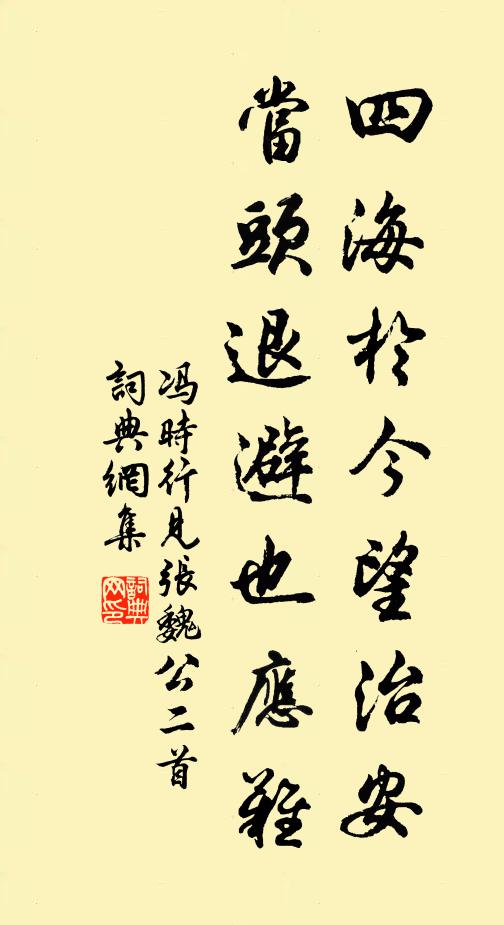 四海於今望治安
當頭退避也應難
冯時行見張魏公二首
詞典網集
詞典網印